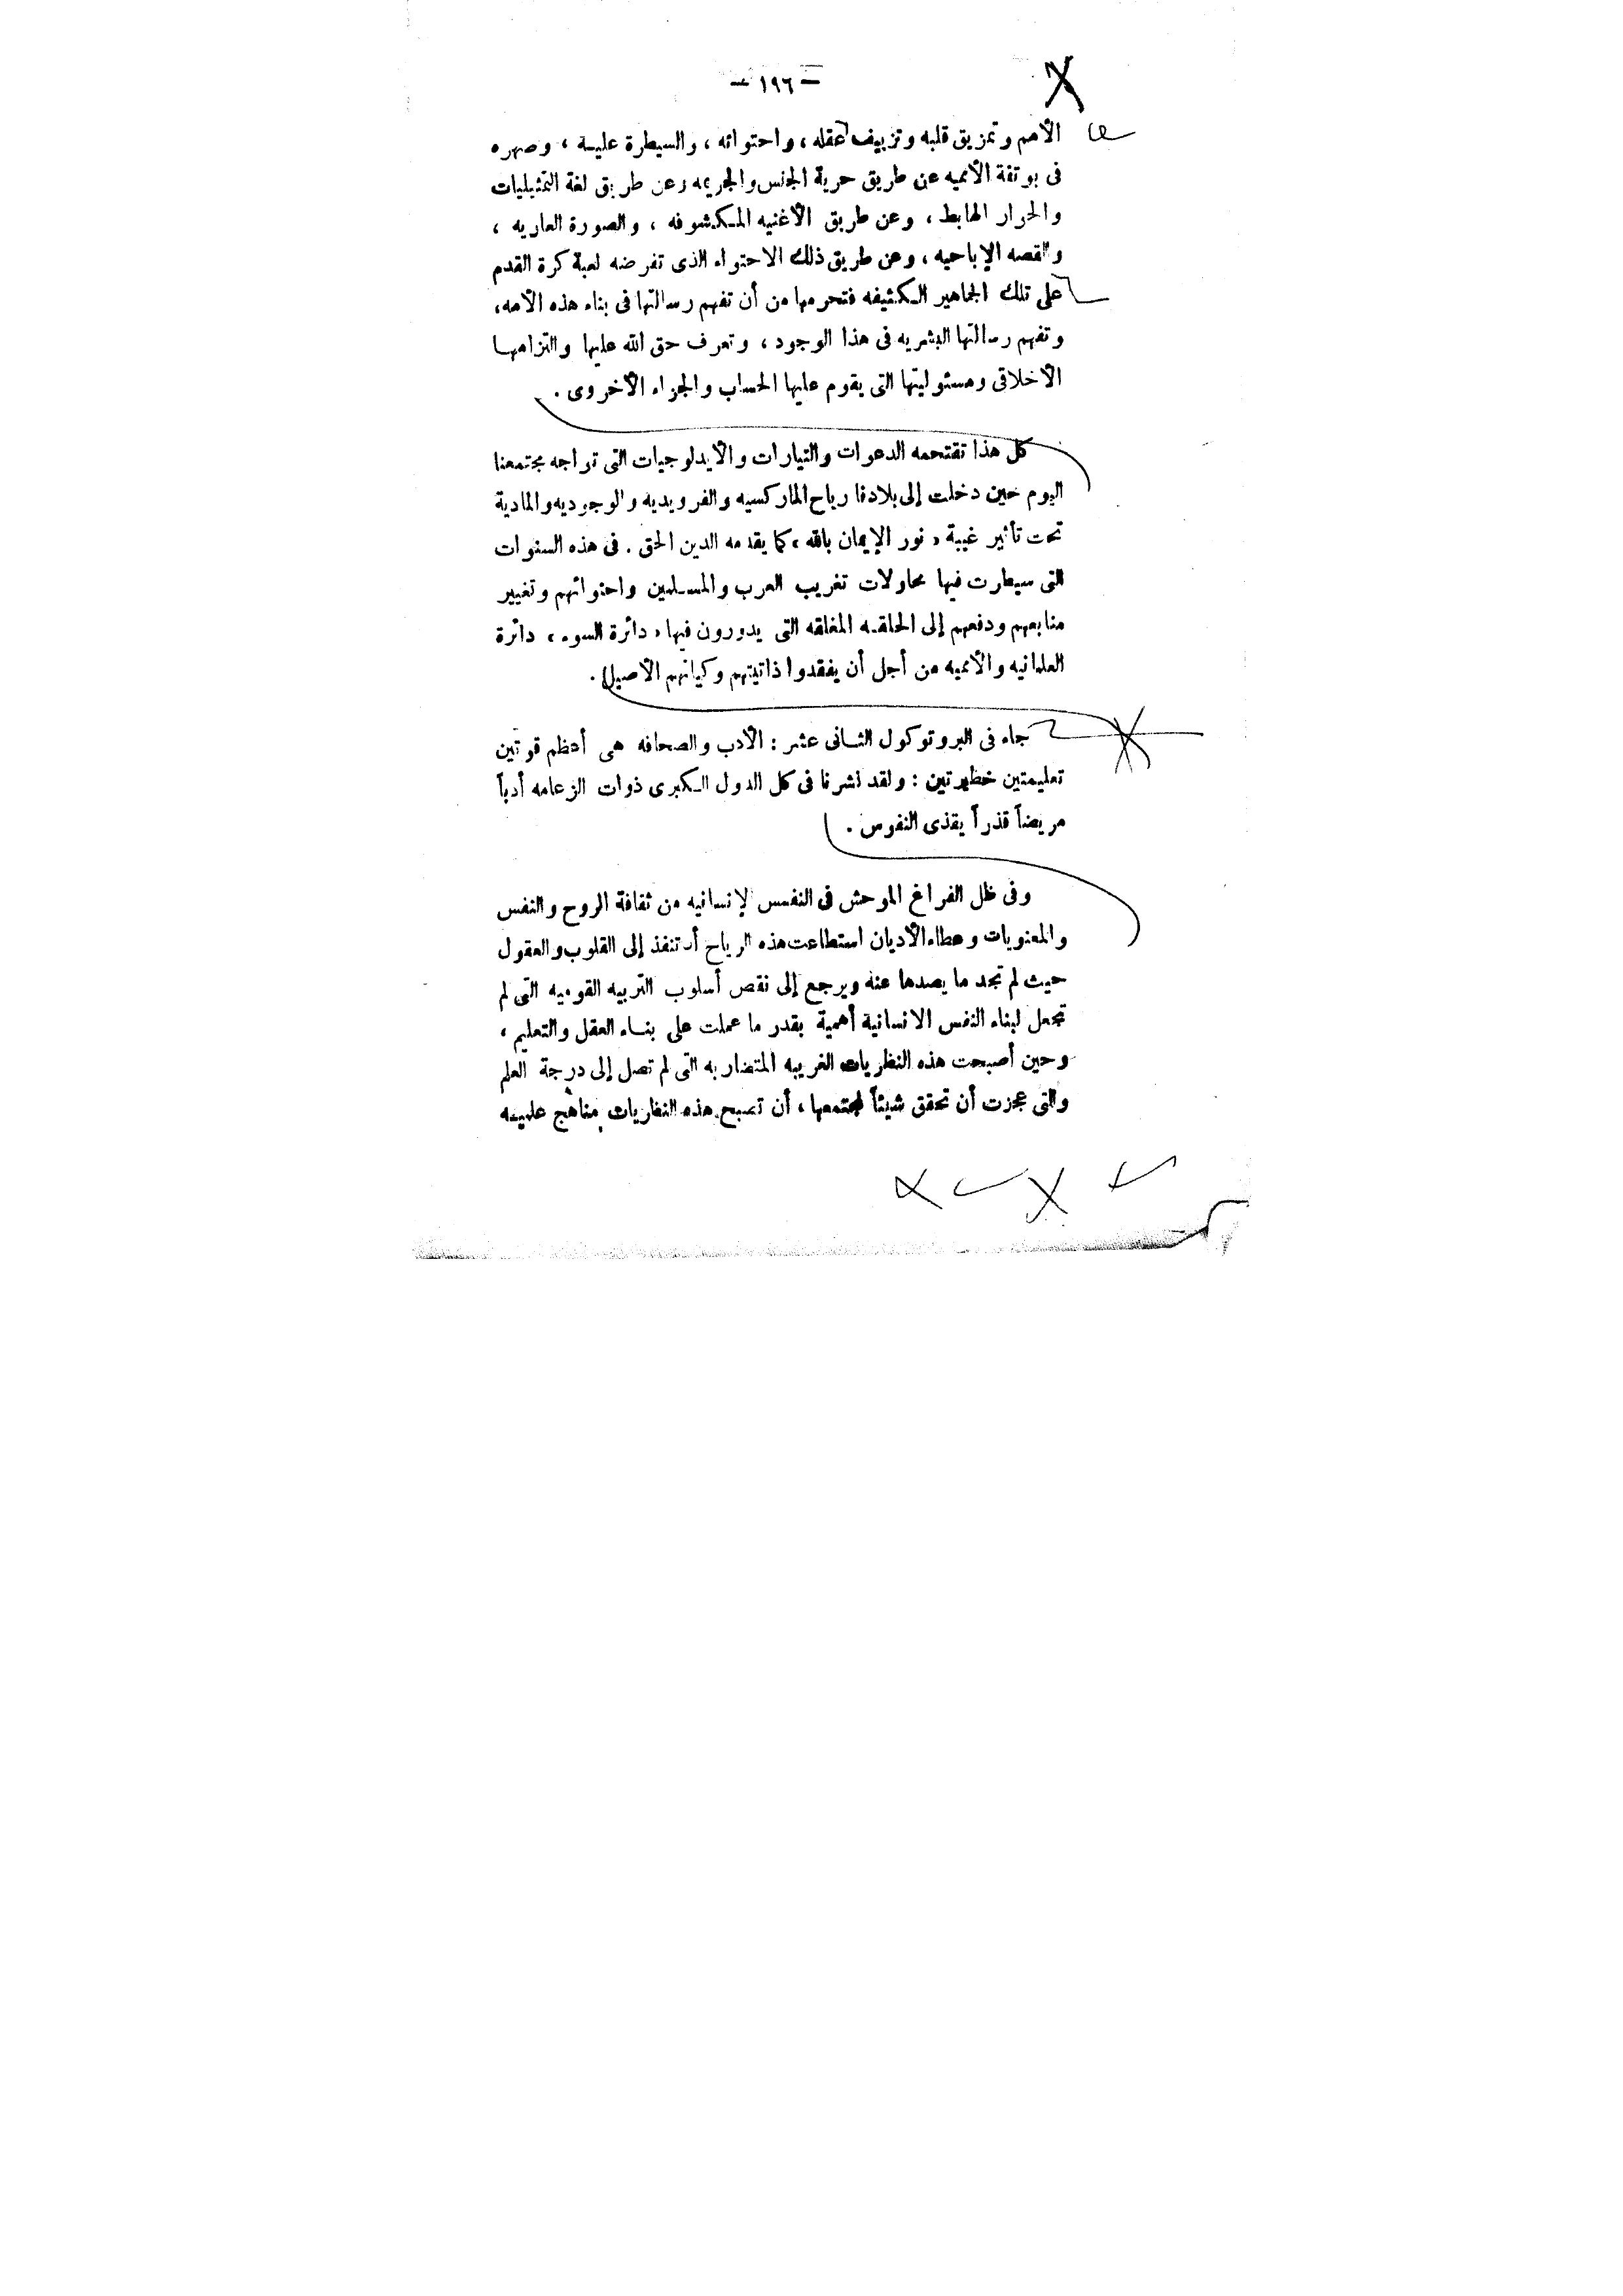 — ١٩٦ —
الأمم وتمزيق قلبه وتزييف عقله ، واحتوائه ، والسيطرة عليـة ، وصهره
فى بوتقة الأمميه عن طريق حرية الجنس والجريمه وعن طريق لغة التمثيليات
والحوار الهابط ، وعن طريق الأغنيه المـكشوفه ، والصورة العاريه ،
والقصه الإباحيه ، وعن طريق ذلك الاحتواء الذى تفرضه لعبة كرة القدم
على تلك الجماهير الـكثيفه فتحرمها من أن تفهم رسالتها فى بناء هذه الأمه،
وتفهم رسالتها البشريه فى هذا الوجود ، وتعرف حق الله عليها والتزامهـا
الأخلاقى ومسئوليتها التى يقوم عليها الحساب والجزاء الأخروى .
كل هذا تقتحمه الدعوات والتيارات والأيدلوجيات التى تواجه مجتمعنا
اليوم حين دخلت إلى بلادنا رياح الماركسيه والفرويديه والوجوديه والمادية
تحت تأثير غيبة « نور الإيمان بالله » كما يقدمه الدين الحق . فى هذه السنوات
التى سيطرت فيها محاولات تغريب العرب والمسلمين واحتوائهم وتغيير
منابعهم ودفعهم إلى الحلقـه المغلقه التى يدورون فيها « دائرة السوء » دائرة
العلمانيه والأمميه من أجل أن يفقدوا ذاتيتهم وكيانهم الأصيل .
جاء فى البروتوكول الثـانى عشر : الأدب والصحافه هى أعظم قوتين
تعليمتين خطيرتين : ولقد نشرنا فى كل الدول الـكبرى ذوات الزعامه أدباً
مريضاً قذراً يقذى النفوس .
وفى ظل الفراغ الموحش فى النفس الإنسانيه من ثقافة الروح والنفس
والمعنويات وعطاء الأديان استطاعت هذه الرياح أن تنفذ إلى القلوب والعقول
حيث لم تجد ما يصدها عنه ويرجع إلى نقص أسلوب التربيه القوميه التى لم
تجعل لبناء النفس الانسانية أهمية بقدر ما عملت على بنـاء العقل والتعليم ،
وحين أصبحت هذه النظريات الغريبه المتضاربه التى لم تصل إلى درجة العلم
والتى عجزت أن تحقق شيئاً لمجتمعها ، أن تصبح هذه النظريات مناهج علميـه